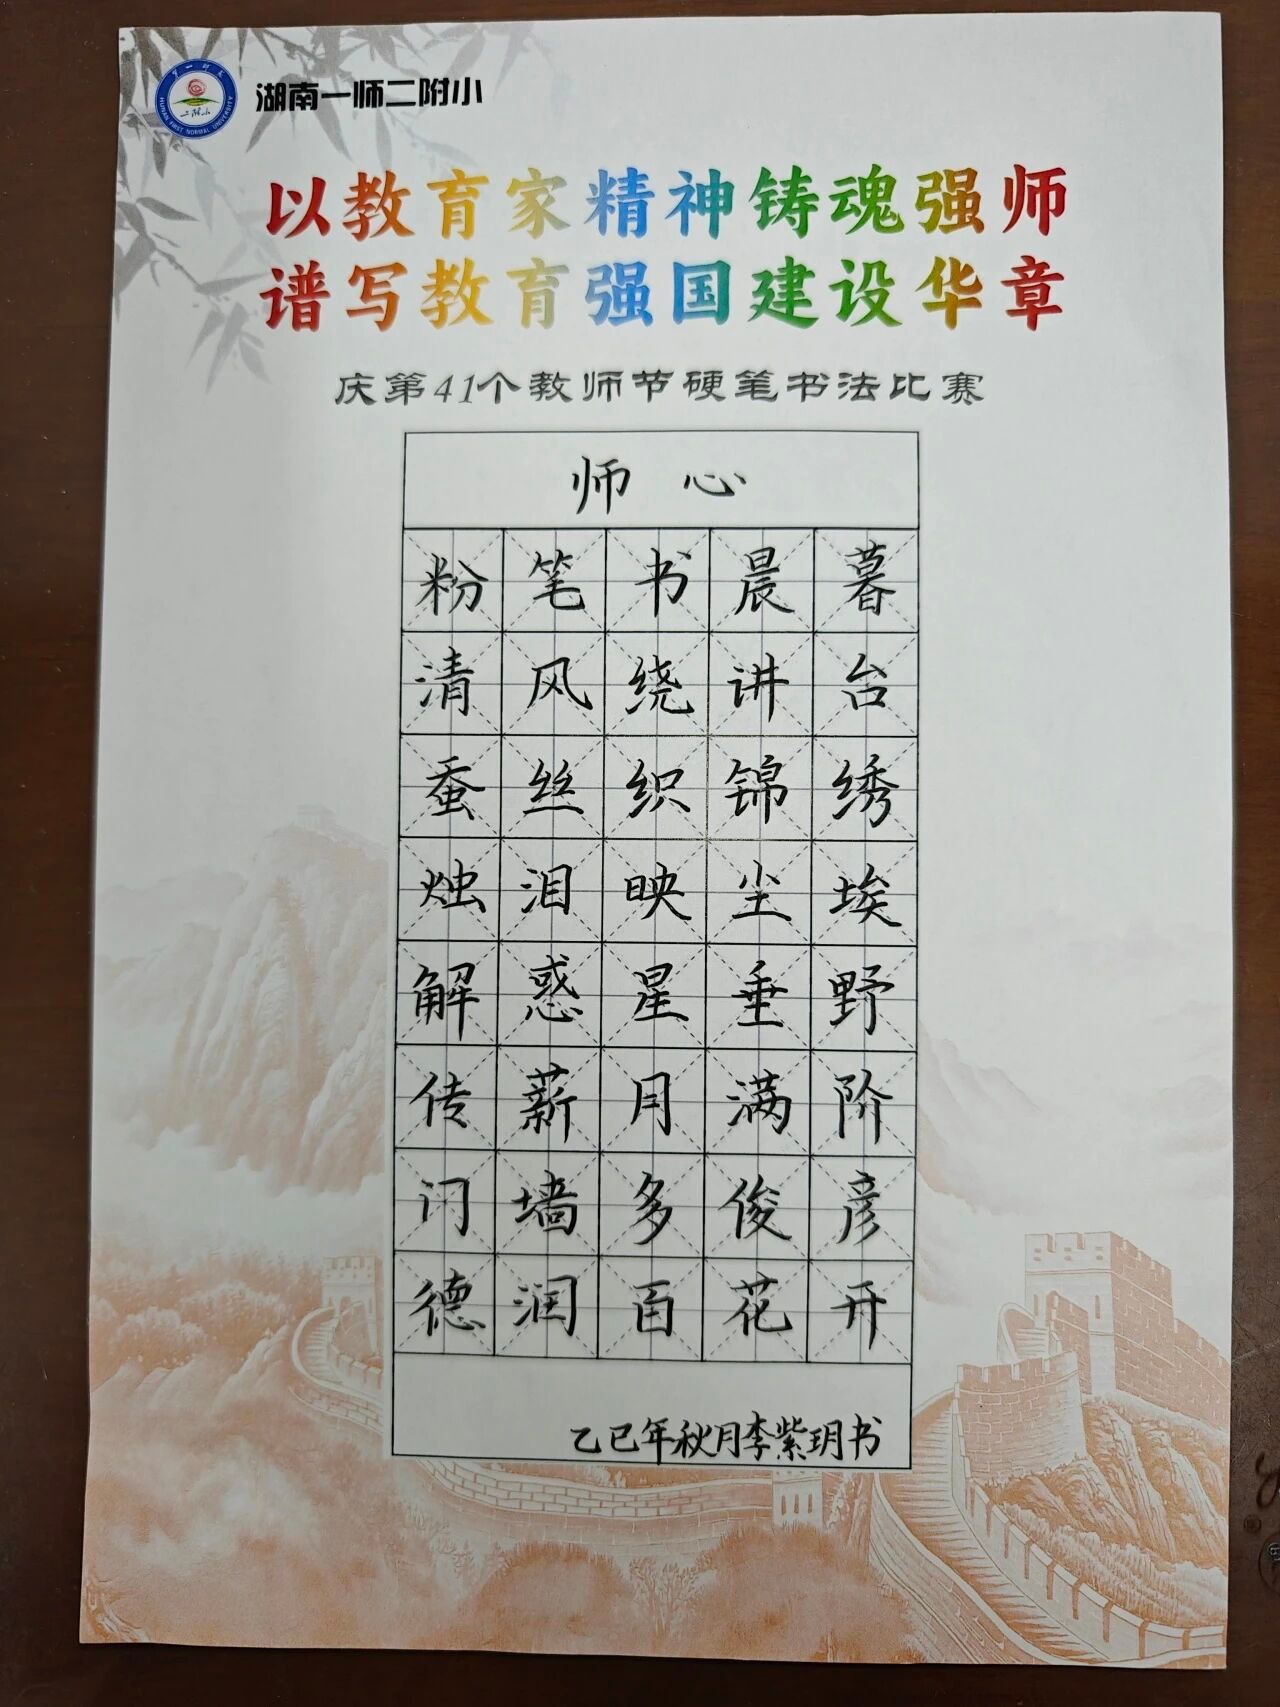 湖南一师二附小
二附小
HUNAN FIRST NORMAL UNIVERSITY
以教育家精神铸魂强师
谱写教育强国建设华章
庆第41个教师节硬笔书法比赛
师心
粉笔书晨暮
清风绕讲台
蚕丝织锦绣
烛泪映尘埃
解惑星垂野
传薪月满阶
门墙多俊彦
德润百花开
乙巳年秋月李紫玥书